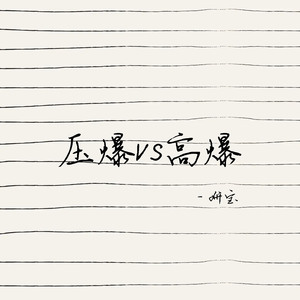 压爆VS高爆
-妍宝